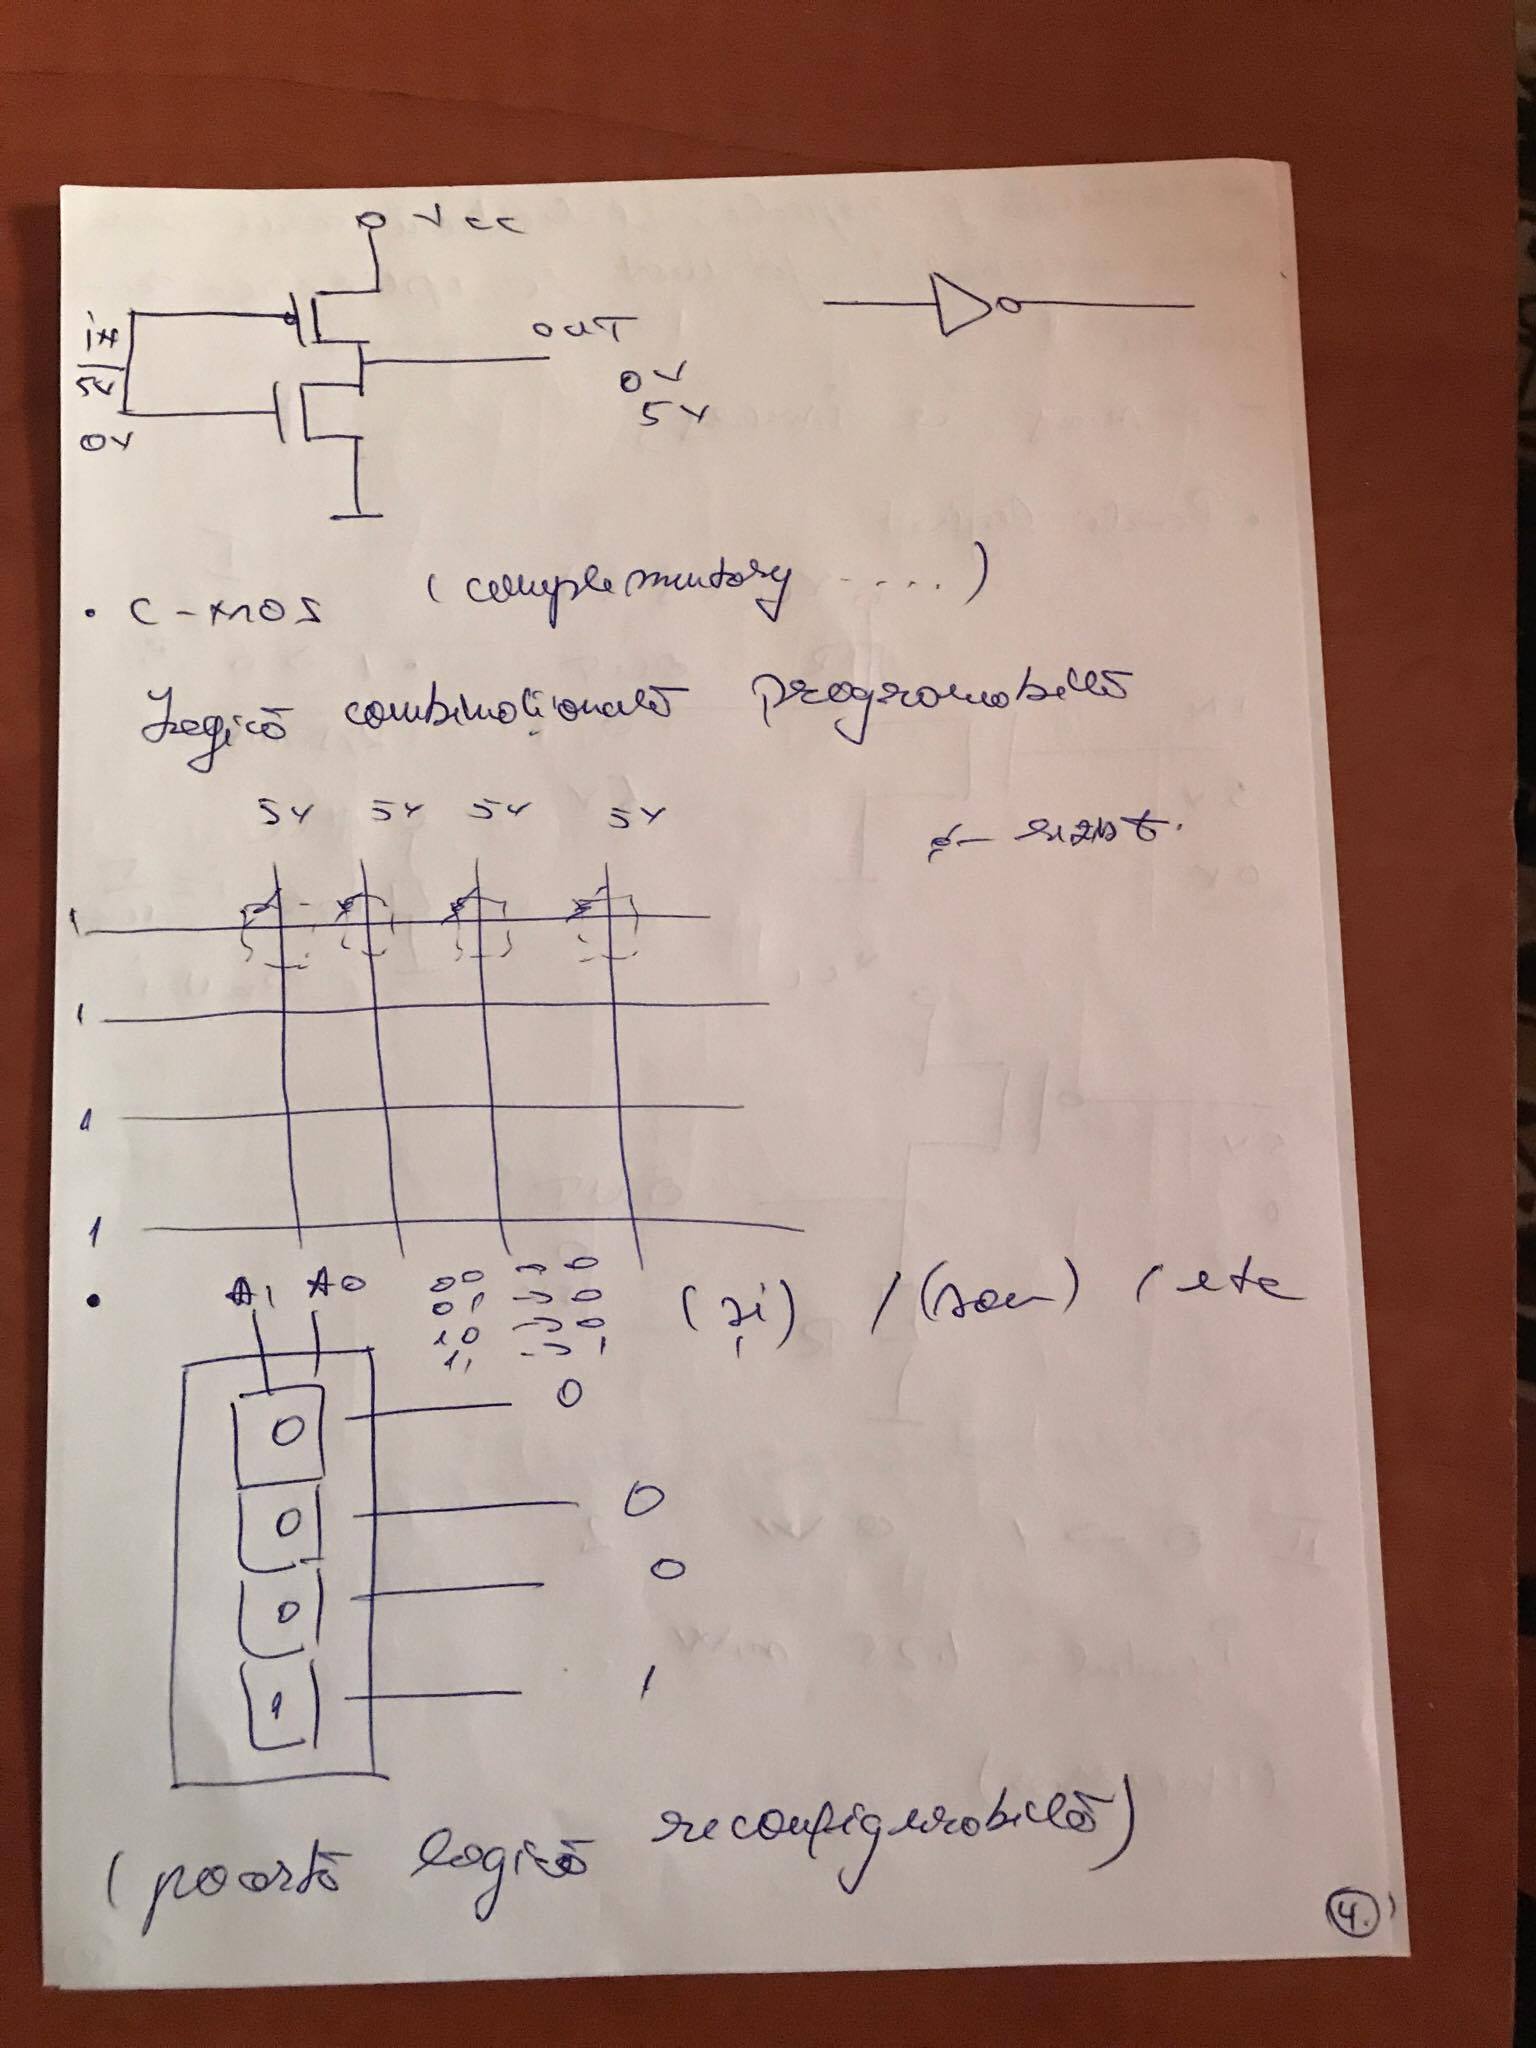 Vcc
in
OUT
5V
0V
0V
5V
• C-MOS (complementary ....)
Logică combinațională programabilă
5V 5V 5V 5V
1
1
1
1
• A1 A0
00 -> 0
01 -> 0
10 -> 0
11 -> 1
(și) / (sau) / etc
0 0
0 0
0 0
1 1
(poartă logică reconfigurabilă)
4.